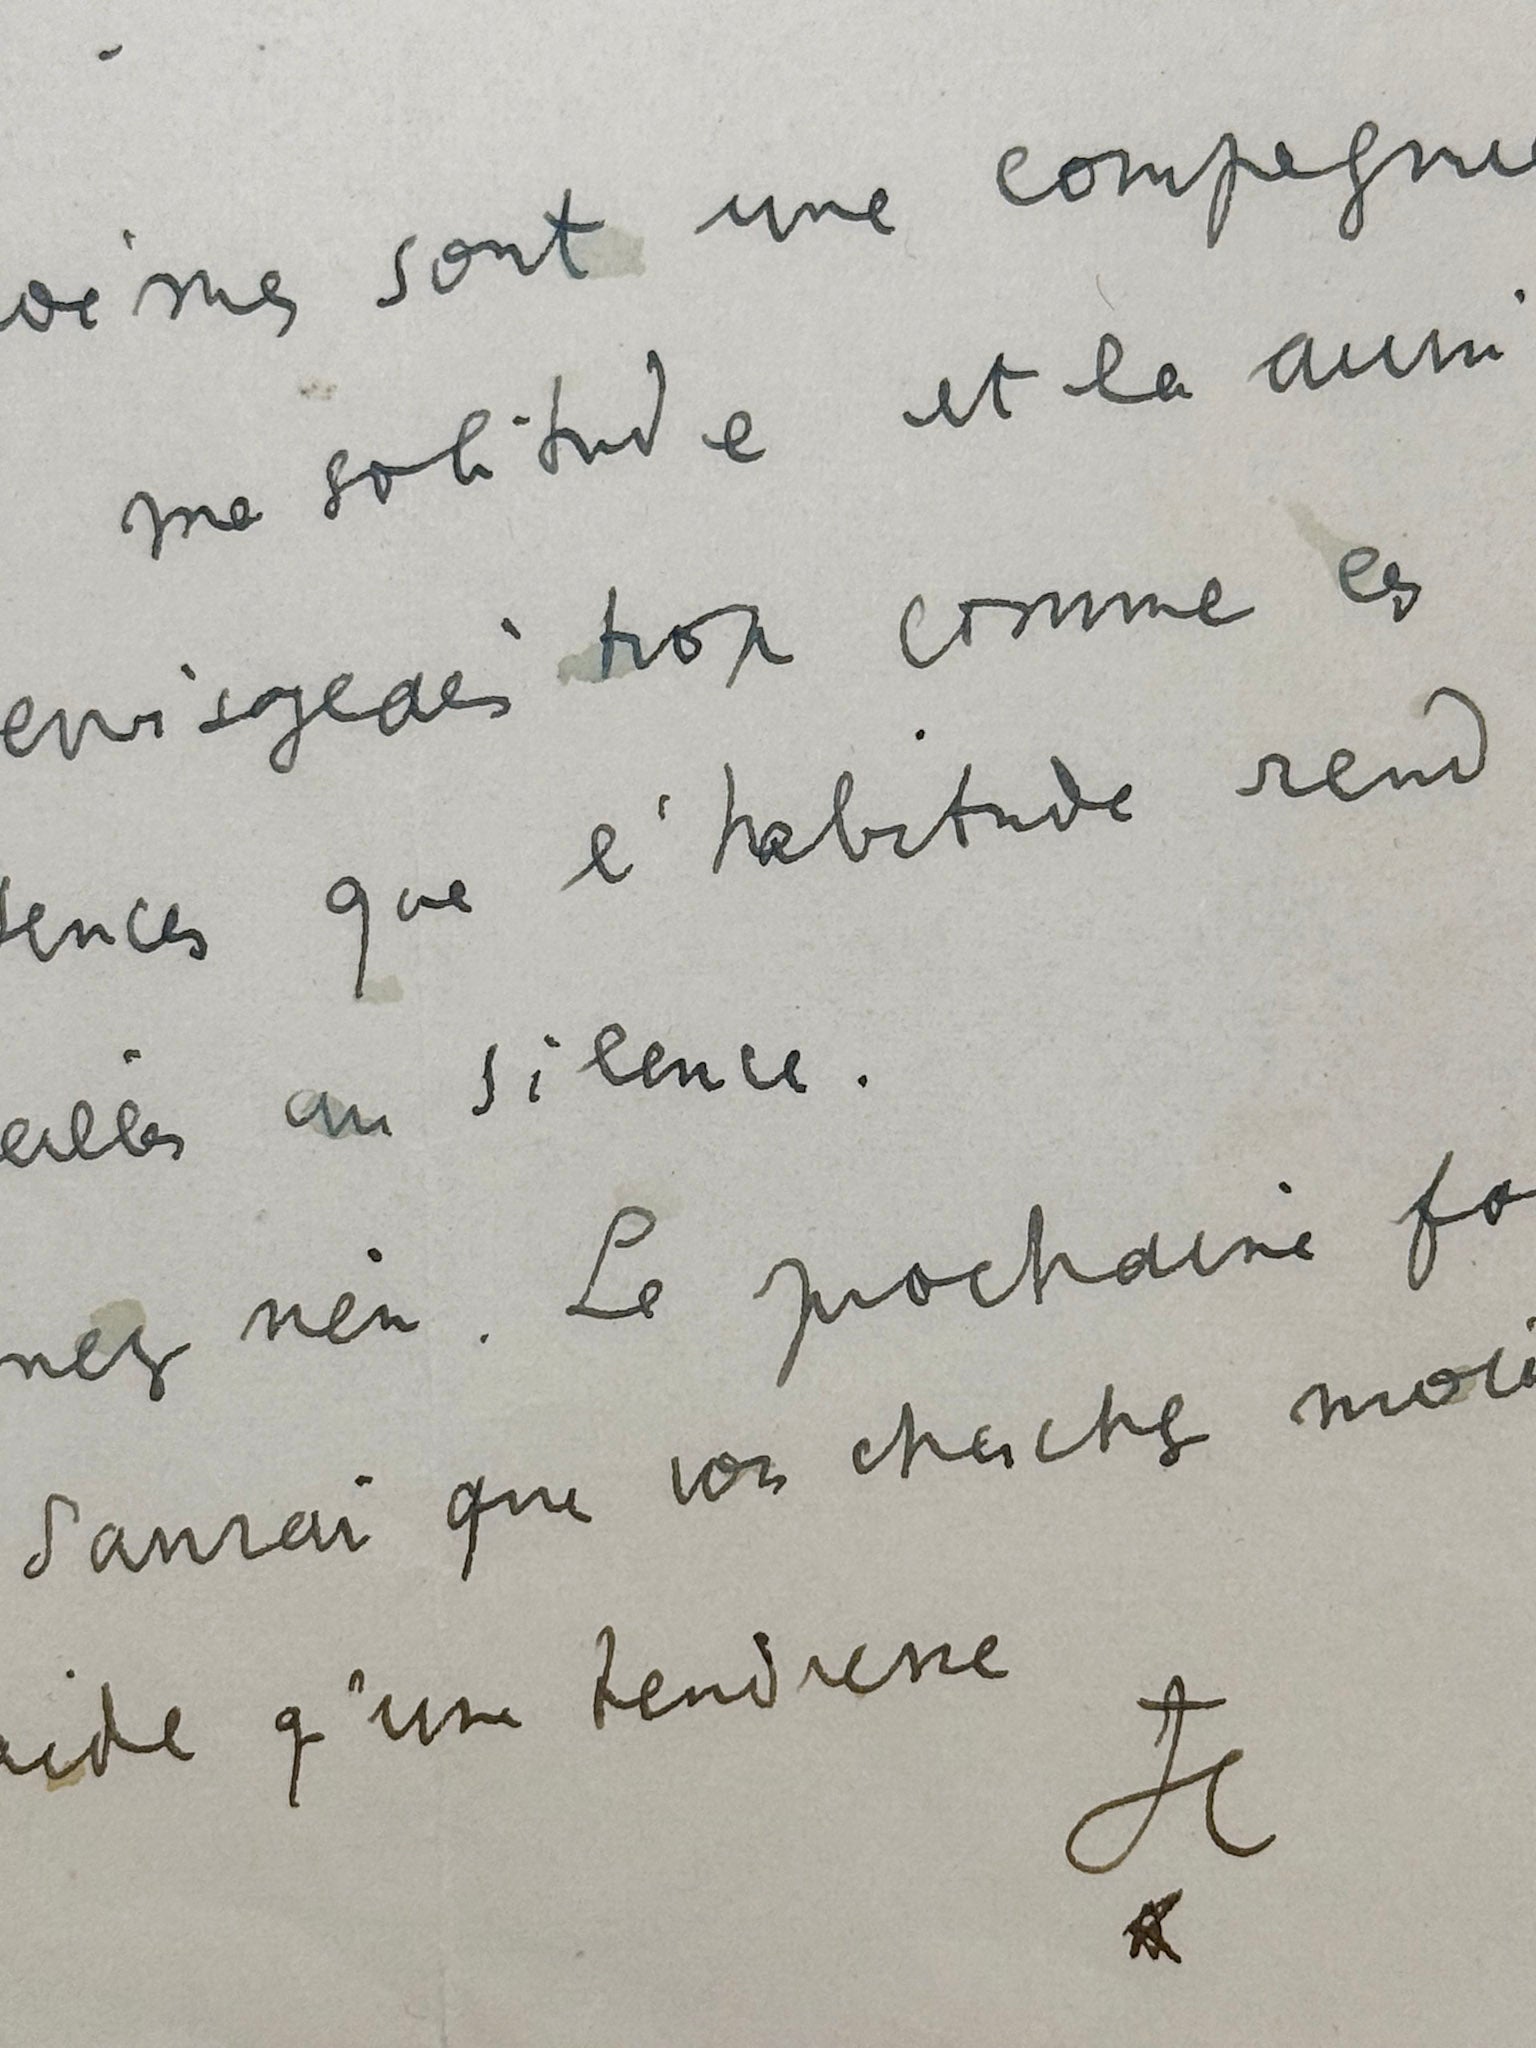 sont une compagnie
ma solitude et la aussi
envisageais trop comme ces
tences que l'habitude rend
eilles au silence.
nez rien. Le prochaine fo
saurai que vous cherchez moi
aide q'une tendresse
Jc